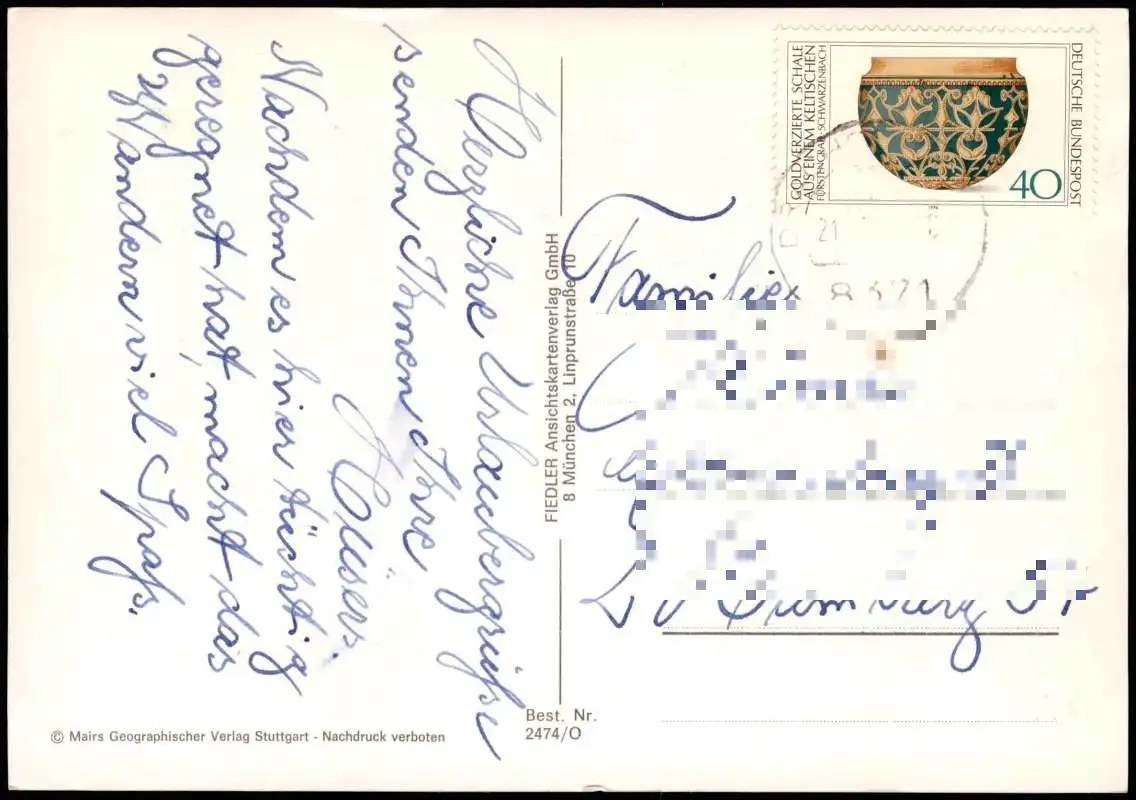 Herzliche Urlaubergrüße
senden Ihnen Ihre
Nachdem es hier tüchtig
geregnet hat, macht das
Wandern viel Spaß.
FIEDLER Ansichtskartenverlag GmbH
8 München 2, Linprunstraße 10
© Mairs Geographischer Verlag Stuttgart - Nachdruck verboten
Best. Nr.
2474/O
GOLDVERZIERTE SCHALE
AUS EINEM KELTISCHEN
FÜRSTENGRAB · SCHWARZENBACH
DEUTSCHE BUNDESPOST
40
21
Familie